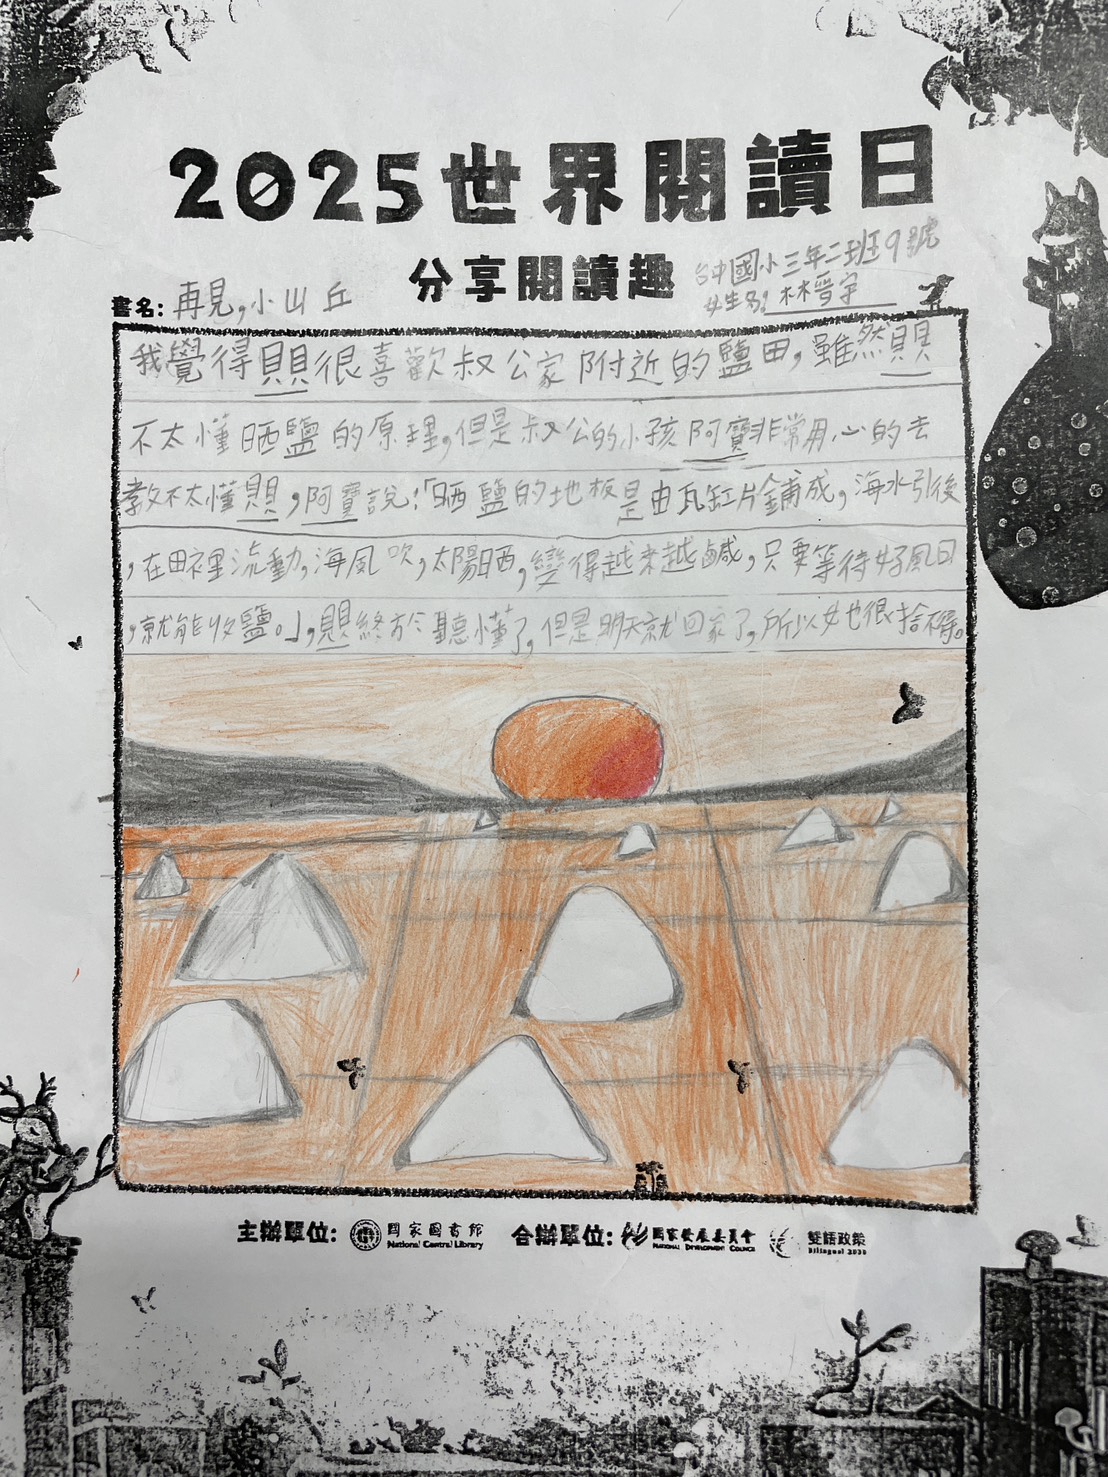 2025世界閱讀日
分享閱讀趣
台中國小三年二班9號
書名:再見,小山丘
姓名:林晉宇
我覺得貝貝很喜歡叔公家附近的鹽田,雖然貝貝
不太懂晒鹽的原理,但是叔公的小孩阿寶非常用心的去
教不太懂貝貝,阿寶說:「晒鹽的地板是由瓦缸片鋪成,海水引後
,在田裡流動,海風吹,太陽晒,變得越來越鹹,只要等待好風日
,就能收鹽。」,貝貝終於聽懂了,但是明天就回家了,所以女也很捨不得。
主辦單位: 國家圖書館 合辦單位: 國家發展委員會 雙語政策
National Central Library NATIONAL DEVELOPMENT COUNCIL Bilingual 2030